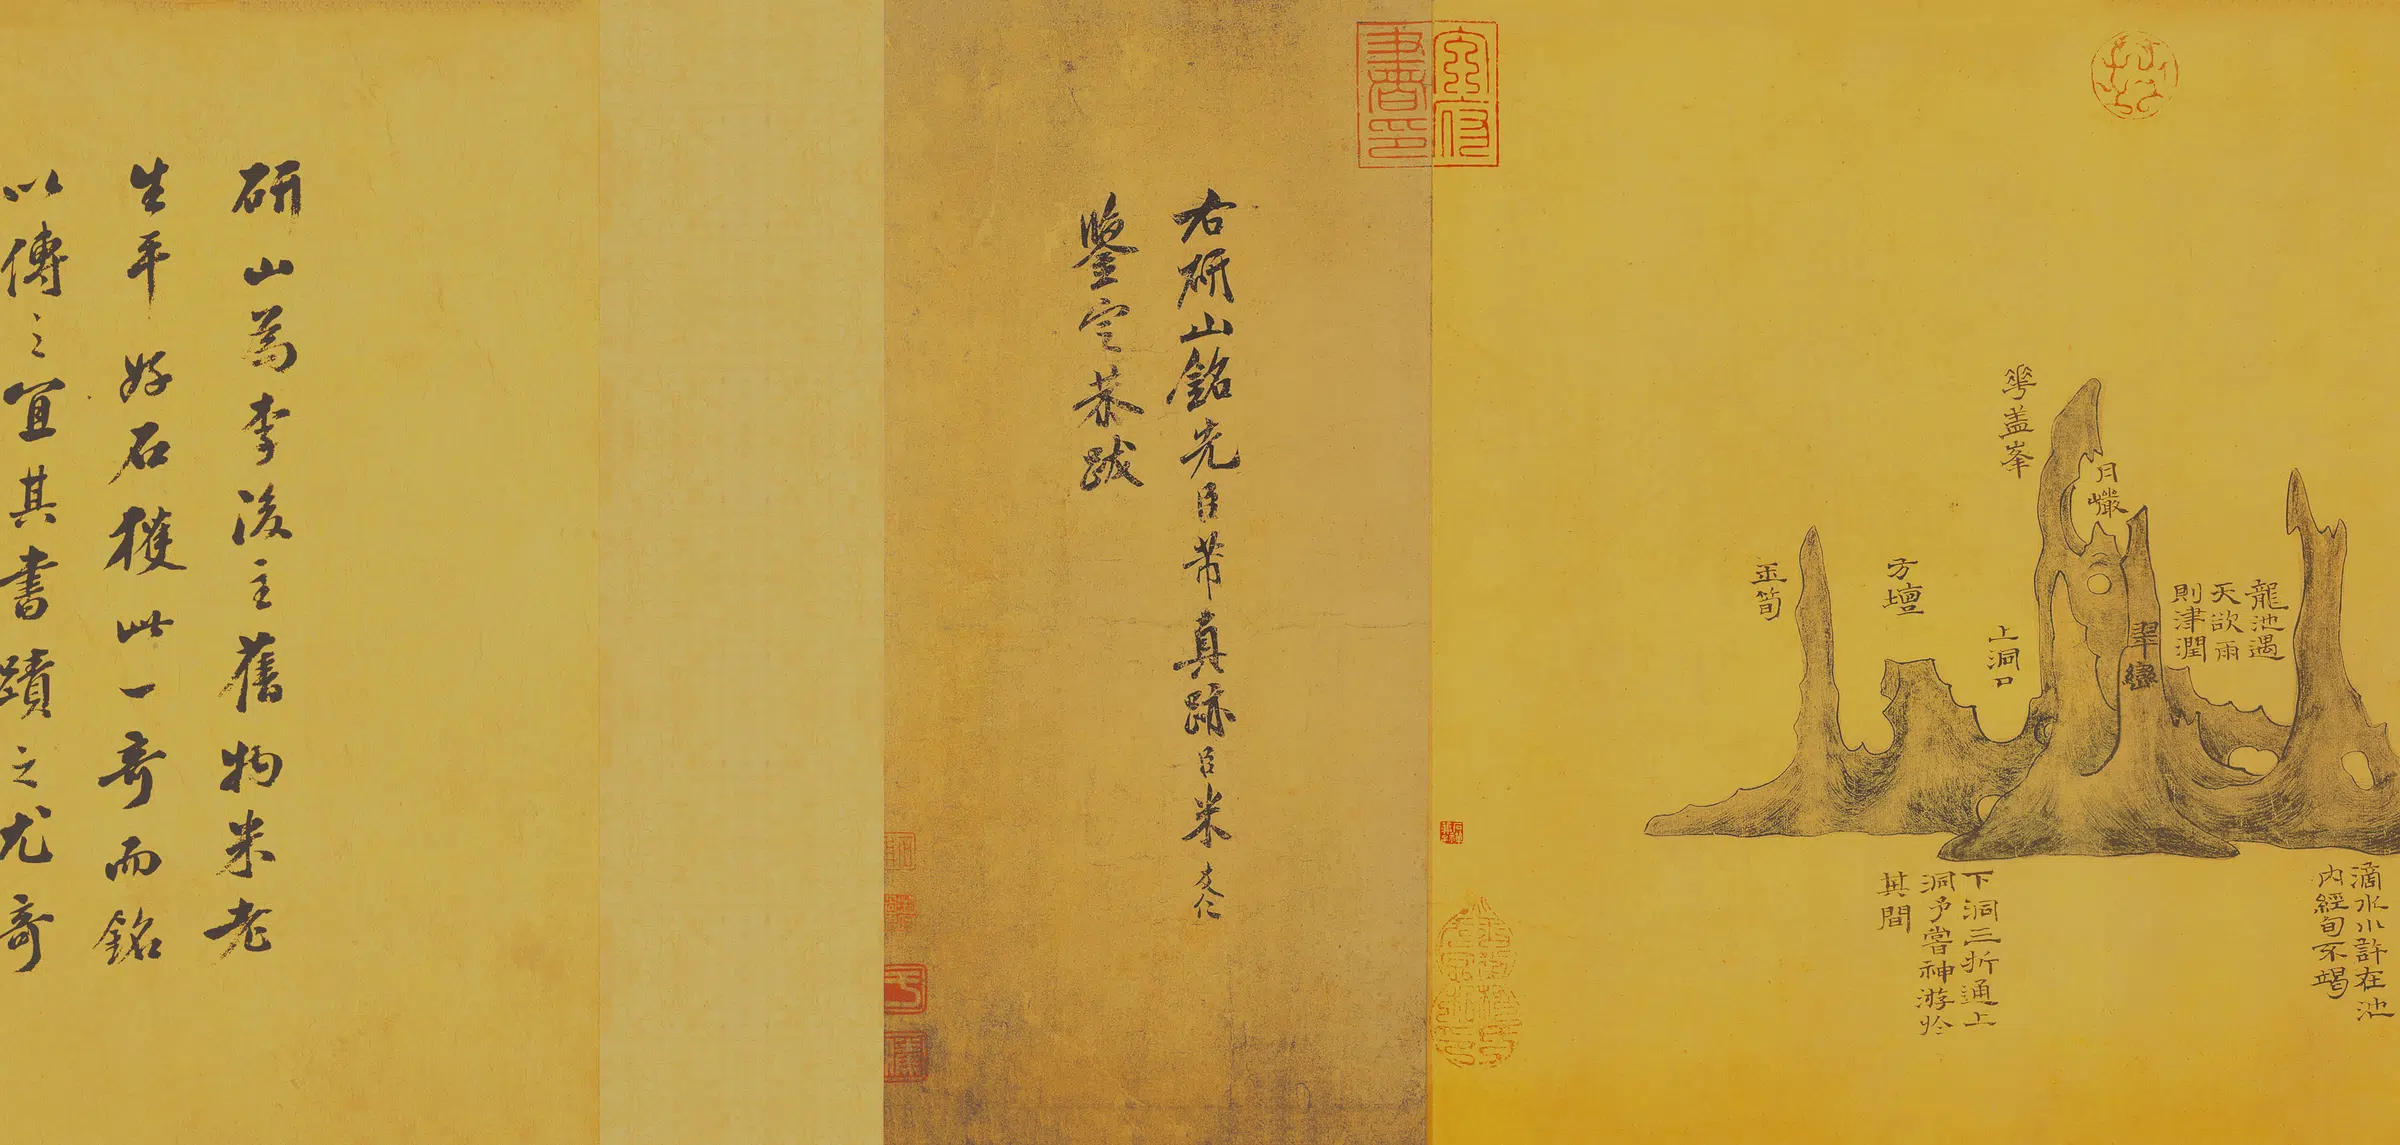 龍池遇
天欲雨
則津潤
滴水小許在池
內經旬不竭
月巖
翠巒
華蓋峯
上洞口
方壇
玉筍
下洞三折通上
洞予嘗神游於
其間
右研山銘先臣芾真跡臣米友仁
鑒定恭跋
研山為李後主舊物米老
生平好石獲此一奇而銘
以傳之宜其書蹟之尤奇